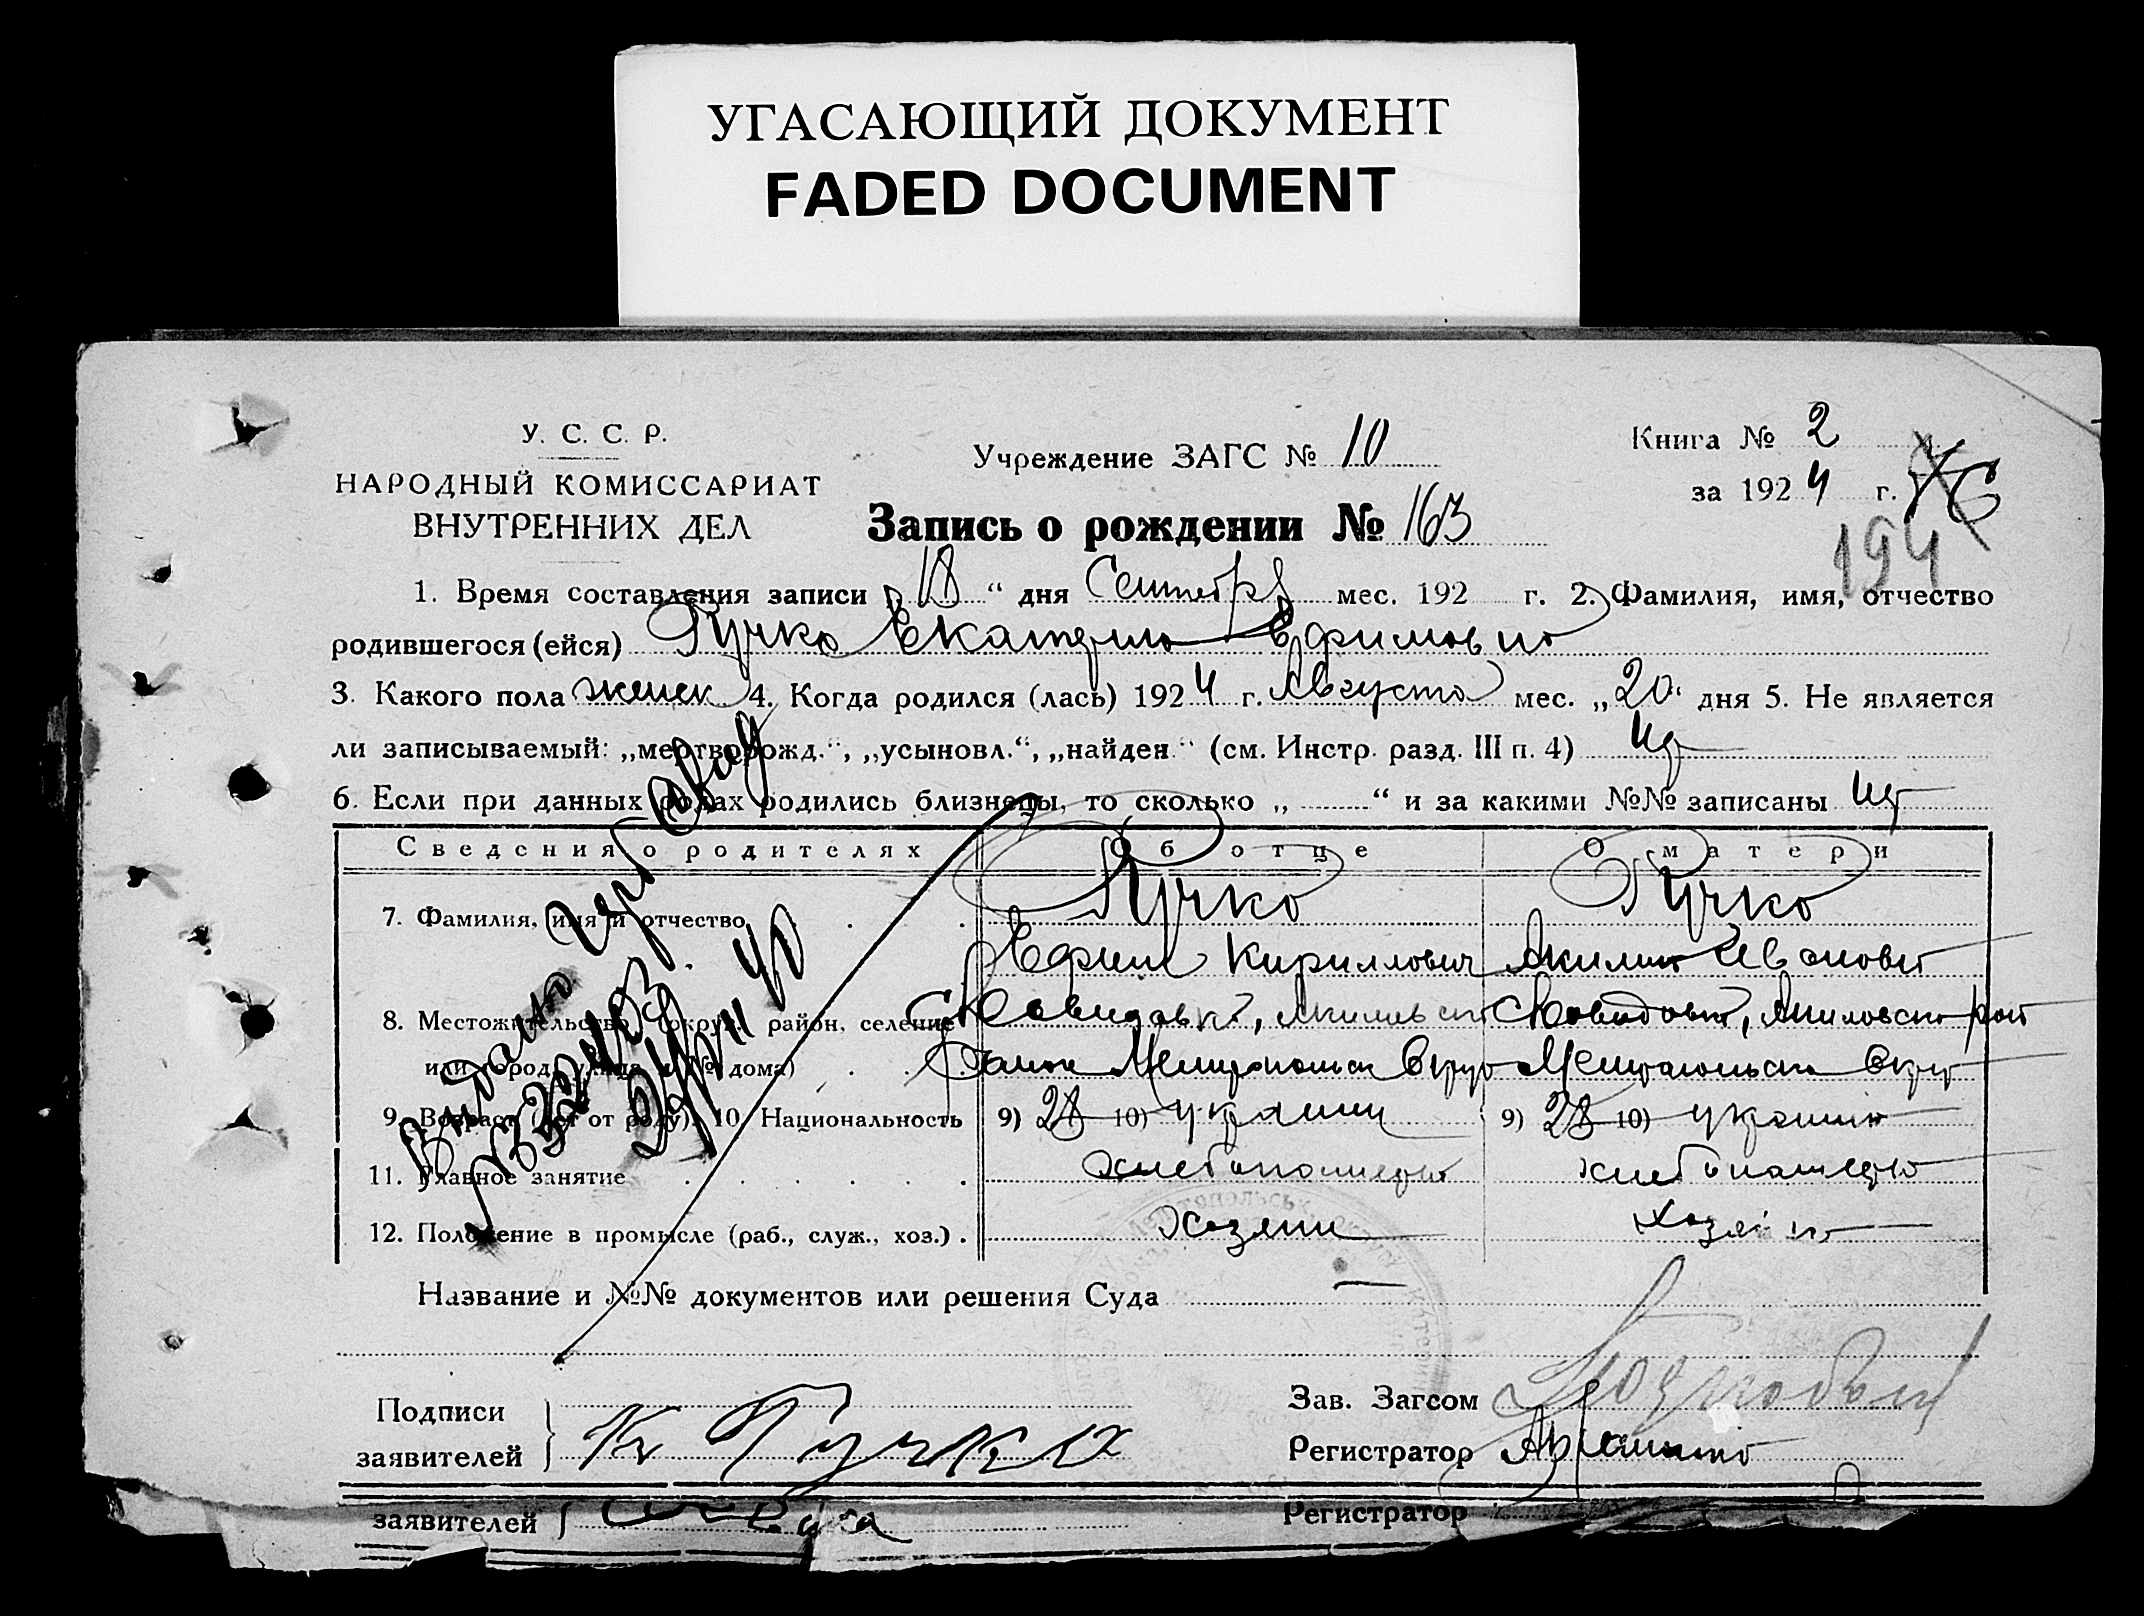 УГАСАЮЩИЙ ДОКУМЕНТ
FADED DOCUMENT
У. С. С. Р.
НАРОДНЫЙ КОМИССАРИАТ
ВНУТРЕННИХ ДЕЛ
Учреждение ЗАГС № 10
Книга № 2
за 1924 г.
194
Запись о рождении № 163
1. Время составления записи „18“ дня Сентября мес. 192 г. 2. Фамилия, имя, отчество
родившегося (ейся) Гучко Екатерина Ефимовна
3. Какого пола женск 4. Когда родился (лась) 1924 г. Августа мес. „20“ дня 5. Не является
ли записываемый: „мертворожд.“, „усыновл.“, „найден.“ (см. Инстр. разд. III п. 4) нет
6. Если при данных родах родились близнецы, то сколько „ “ и за какими №№ записаны нет
Сведения о родителях Об отце О матери
7. Фамилия, имя и отчество Гучко Гучко
Ефим Кириллович Акилина Ивановна
8. Местожительство (округ, район, селение
или город, улица и № дома) район Мелитопольск Округа Мелитопольск Округ
9. Возраст (лет от роду). 10. Национальность 9) 28 10) украин 9) 28 10) украин
11. Главное занятие хлебопашество хлебопашество
12. Положение в промысле (раб., служ., хоз.) . хозяин хозяйка
Название и №№ документов или решения Суда —
Подписи
заявителей К Гучко
Зав. Загсом
Регистратор
заявителей
Регистратор